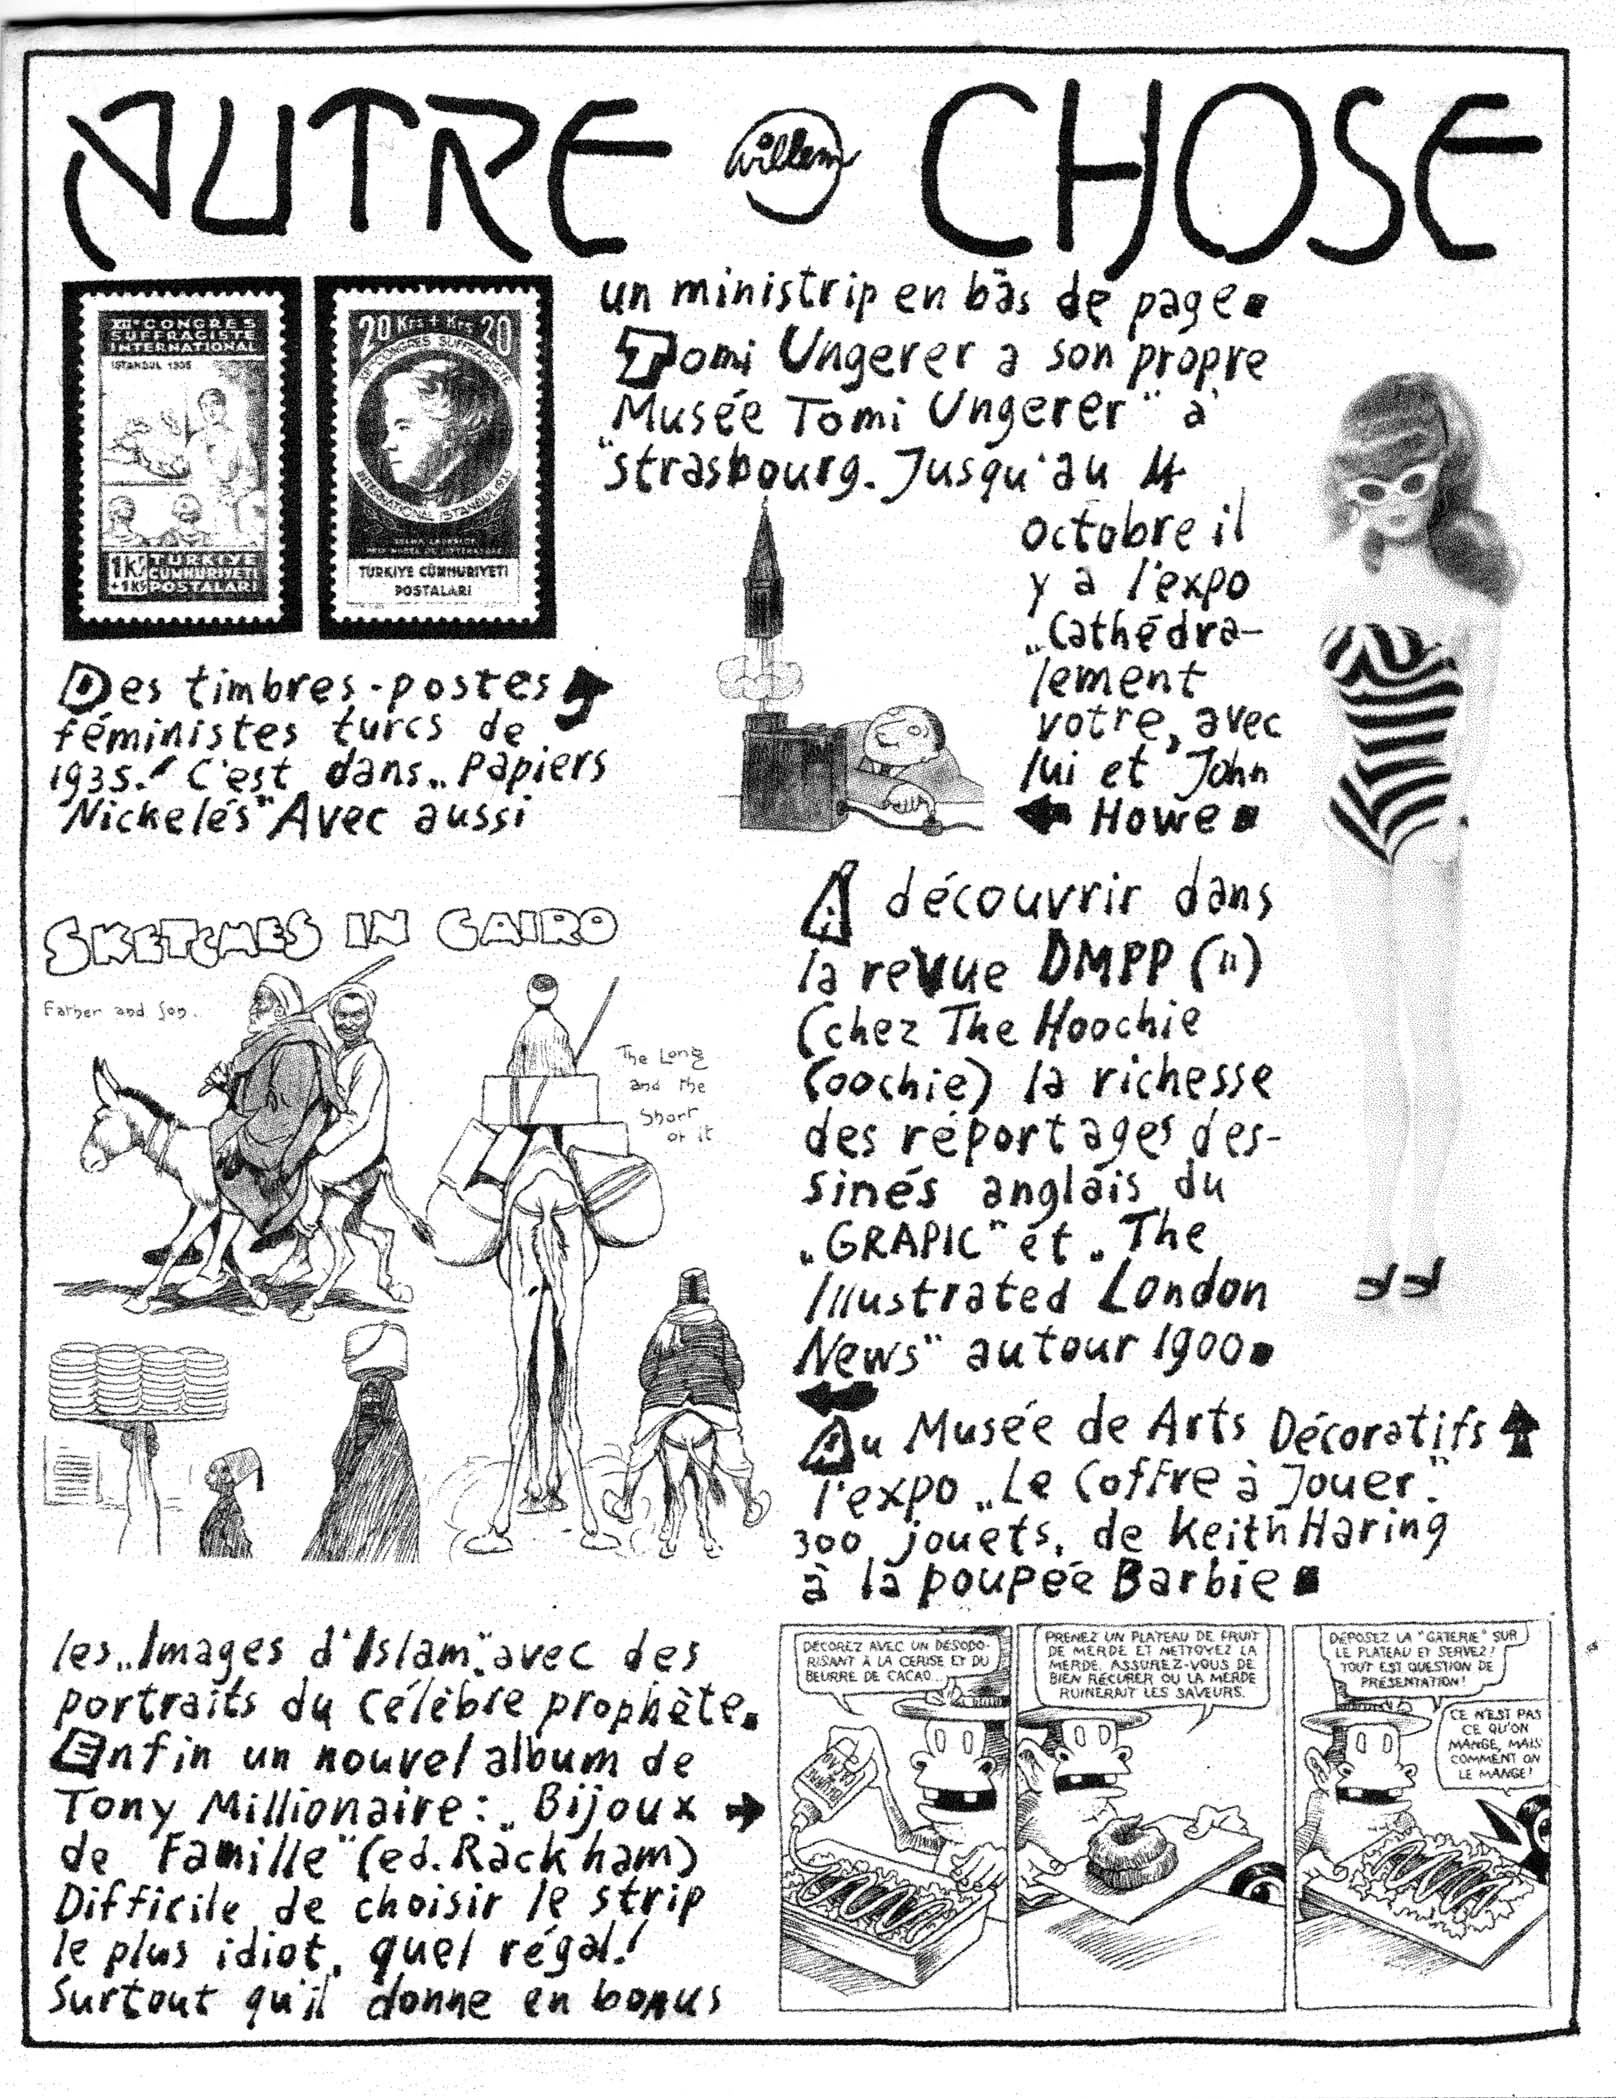 AUTRE willem CHOSE
XIIe CONGRÈS
SUFFRAGISTE
INTERNATIONAL
ISTANBUL 1935
1 Krş
+1 Krş
TÜRKİYE
CÜMHURİYETİ
POSTALARI
20 Krş + Krş 20
CONGRES SUFFRAGISTE
INTERNATIONAL ISTANBUL 1935
SELMA LAGERLÖF
PRIX NOBEL DE LITTÉRATURE
TÜRKIYE CÜMHURIYETI
POSTALARI
Des timbres-postes
féministes turcs de
1935! C'est dans „Papiers
Nickelés" Avec aussi
SKETCHES IN CAIRO
Father and Son..
The Long
and the
Short
of it
les „Images d'Islam", avec des
portraits du célèbre prophète.
Enfin un nouvel album de
Tony Millionaire: „Bijoux
de Famille" (ed. Rackham)
Difficile de choisir le strip
le plus idiot, quel régal!
Surtout qu'il donne en bonus
un ministrip en bàs de page
Tomi Ungerer a son propre
"Musée Tomi Ungerer" à
strasbourg. Jusqu'au 4
octobre il
y a l'expo
„Cathédra-
lement
votre, avec
lui et John
Howe
A découvrir dans
la revue DMPP (11)
(chez The Hoochie
Coochie) la richesse
des réportages des-
sinés anglais du
„GRAPIC" et „The
Illustrated London
News" autour 1900
Au Musée de Arts Décoratifs
l'expo „Le Coffre à Jouer."
300 jouets, de Keith Haring
à la poupée Barbie
DÉCOREZ AVEC UN DÉSODO-
RISANT À LA CERISE ET DU
BEURRE DE CACAO...
PRENEZ UN PLATEAU DE FRUIT
DE MERDE ET NETTOYEZ LA
MERDE. ASSUREZ-VOUS DE
BIEN RÉCURER OU LA MERDE
RUINERAIT LES SAVEURS.
DÉPOSEZ LA "GÂTERIE" SUR
LE PLATEAU ET SERVEZ!
TOUT EST QUESTION DE
PRÉSENTATION!
CE N'EST PAS
CE QU'ON
MANGE, MAIS
COMMENT ON
LE MANGE!